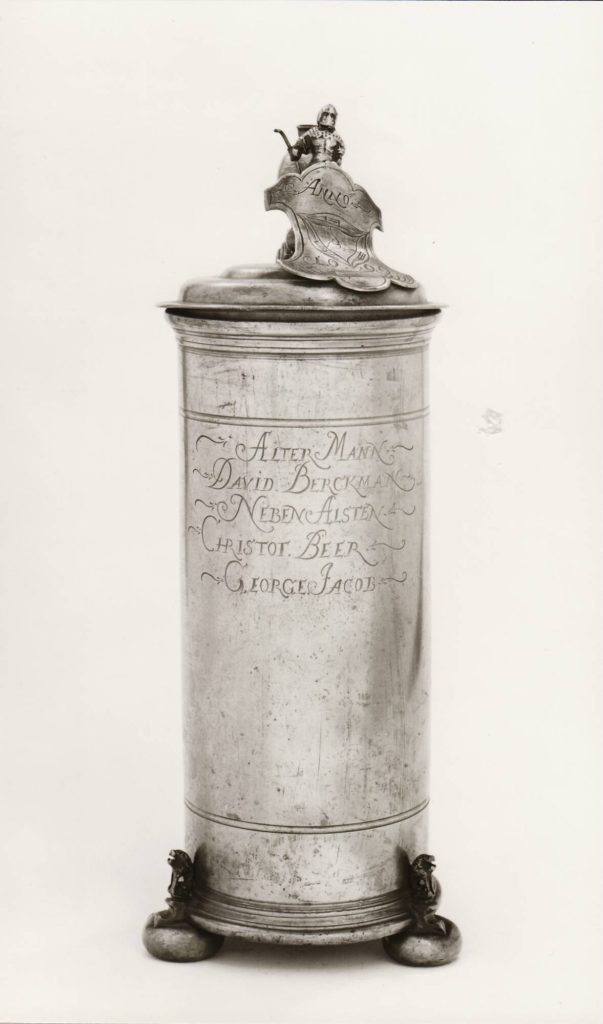 ANNO
ALTER MANN
DAVID BERCKMAN
NEBEN ALSTEN
CHRISTOF. BEER
GEORGE JACOB